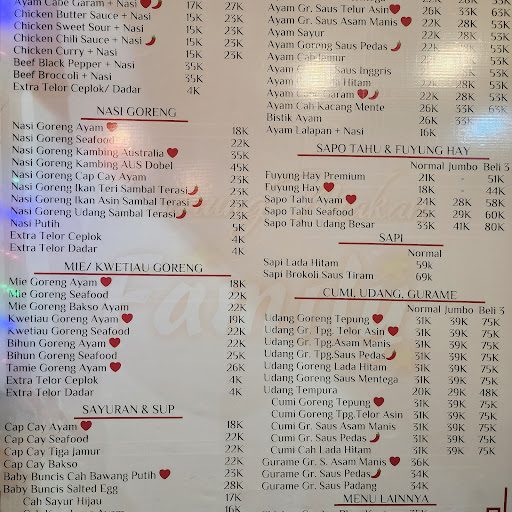 Ayam Cabe Garam + Nasi 17K 27K
Chicken Butter Sauce + Nasi 15K 23K
Chicken Sweet Sour + Nasi 15K 23K
Chicken Chili Sauce + Nasi 15K 23K
Chicken Curry + Nasi 15K 23K
Beef Black Pepper + Nasi 35K
Beef Broccoli + Nasi 35K
Extra Telor Ceplok/ Dadar 4K
NASI GORENG
Nasi Goreng Ayam 18K
Nasi Goreng Seafood 22K
Nasi Goreng Kambing Australia 35K
Nasi Goreng Kambing AUS Dobel 45K
Nasi Goreng Cap Cay Ayam 23K
Nasi Goreng Ikan Teri Sambal Terasi 23K
Nasi Goreng Ikan Asin Sambal Terasi 23K
Nasi Goreng Udang Sambal Terasi 23K
Nasi Putih 5K
Extra Telor Ceplok 4K
Extra Telor Dadar 4K
MIE/ KWETIAU GORENG
Mie Goreng Ayam 18K
Mie Goreng Seafood 22K
Mie Goreng Bakso Ayam 22K
Kwetiau Goreng Ayam 19K
Kwetiau Goreng Seafood 22K
Bihun Goreng Ayam 22K
Bihun Goreng Seafood 25K
Tamie Goreng Ayam 26K
Extra Telor Ceplok 4K
Extra Telor Dadar 4K
SAYURAN & SUP
Cap Cay Ayam 18K
Cap Cay Seafood 22K
Cap Cay Tiga Jamur 22K
Cap Cay Bakso 22K
Baby Buncis Cah Bawang Putih 23K
Baby Buncis Salted Egg 28K
Cah Sayur Hijau 17K
16K
Ayam Gr. Saus Telor Asin 26K 33K 63K
Ayam Gr. Saus Asam Manis 22K 28K 53K
Ayam Sayur 22K 28K 53K
Ayam Goreng Saus Pedas 22K 28K 53K
Ayam Cah Jamur
Saus Inggris
Hitam 22K 28K
22K 28K 53K
Ayam Cah Kacang Mente 26K 33K 63K
Bistik Ayam 26K 33K
Ayam Lalapan + Nasi 16K
SAPO TAHU & FUYUNG HAY
Normal Jumbo Beli 3
Fuyung Hay Premium 21K - 51K
Fuyung Hay 18K - 44K
Sapo Tahu Ayam 24K 28K 58K
Sapo Tahu Seafood 25K 29K 60K
Sapo Tahu Udang Besar 33K 41K 80K
SAPI
Normal
Sapi Lada Hitam 59k
Sapi Brokoli Saus Tiram 69k
CUMI, UDANG, GURAME
Normal Jumbo Beli 3
Udang Goreng Tepung 31K 39K 75K
Udang Gr. Tpg. Telor Asin 31K 39K 75K
Udang Gr. Tpg.Asam Manis 31K 39K 75K
Udang Gr. Tpg.Saus Pedas 31K 39K 75K
Udang Goreng Lada Hitam 31K 39K 75K
Udang Goreng Saus Mentega 31K 39K 75K
Udang Tempura 20K 29K 48K
Cumi Goreng Tepung 31K 39K 75K
Cumi Goreng Tpg.Telor Asin 31K 39K 75K
Cumi Gr. Saus Asam Manis 31K 39K 75K
Cumi Gr. Saus Pedas 31K 39K 75K
Cumi Cah Lada Hitam 31K 39K 75K
Gurame Gr. S. Asam Manis 36K
Gurame Gr. Saus Pedas 34K
Gurame Gr. Saus Padang 34K
MENU LAINNYA